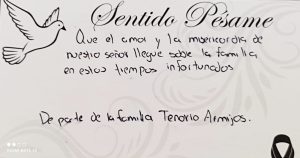 Sentido Pésame
Que el amor y la misericordia de
nuestro señor llegue sobre la familia
en estos tiempos infortunados
De parte de la familia Tenorio Armijos.